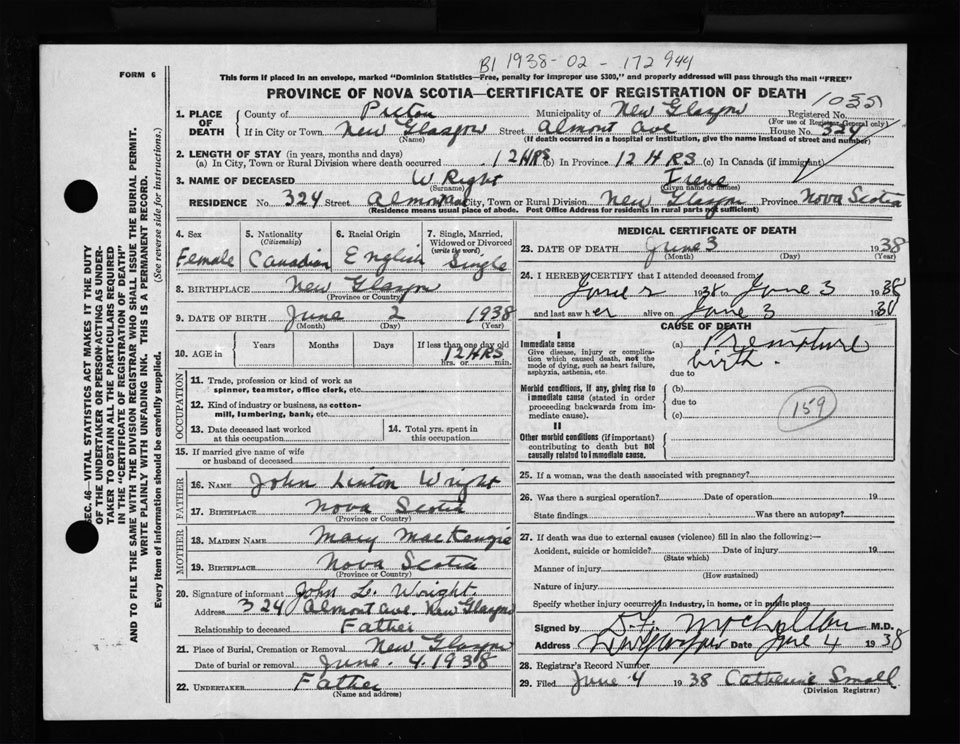 B1 1938-02-172944
FORM 6
This form if placed in an envelope, marked "Dominion Statistics—Free, penalty for improper use $300," and properly addressed will pass through the mail "FREE"
PROVINCE OF NOVA SCOTIA—CERTIFICATE OF REGISTRATION OF DEATH
1. PLACE OF DEATH County of Pictou Municipality of New Glasgow Registered No. 1055
(For use of Registrar General only)
If in City or Town New Glasgow Street Almont Ave House No. 324
(Name) (If death occurred in a hospital or institution, give the name instead of street and number)
2. LENGTH OF STAY (in years, months and days)
(a) In City, Town or Rural Division where death occurred 12 HRS (b) In Province 12 HRS (c) In Canada (if immigrant)
3. NAME OF DECEASED Wright Irene
(Surname) (Given name or names)
RESIDENCE No. 324 Street Almont Ave City, Town or Rural Division New Glasgow Province Nova Scotia
(Residence means usual place of abode. Post Office Address for residents in rural parts not sufficient)
4. Sex Female
5. Nationality (Citizenship) Canadian
6. Racial Origin English
7. Single, Married, Widowed or Divorced (write the word) Single
8. BIRTHPLACE New Glasgow
(Province or Country)
9. DATE OF BIRTH June 2 1938
(Month) (Day) (Year)
10. AGE in Years Months Days If less than one day old
12 HRS
hrs. or min.
OCCUPATION
11. Trade, profession or kind of work as spinner, teamster, office clerk, etc.
12. Kind of industry or business, as cotton-mill, lumbering, bank, etc.
13. Date deceased last worked at this occupation
14. Total yrs. spent in this occupation
15. If married give name of wife or husband of deceased
FATHER
16. NAME John Linton Wright
17. BIRTHPLACE Nova Scotia
(Province or Country)
MOTHER
18. MAIDEN NAME Mary MacKenzie
19. BIRTHPLACE Nova Scotia
(Province or Country)
20. Signature of informant John L. Wright.
Address 324 Almont Ave. New Glasgow
Relationship to deceased Father
21. Place of Burial, Cremation or Removal New Glasgow
Date of burial or removal June. 4. 1938
22. UNDERTAKER Father
(Name and address)
MEDICAL CERTIFICATE OF DEATH
23. DATE OF DEATH June 3 1938
(Month) (Day) (Year)
24. I HEREBY CERTIFY that I attended deceased from
June 2 1938 to June 3 1938
and last saw her alive on June 3 1938
CAUSE OF DEATH
I
Immediate cause
Give disease, injury or complication which caused death, not the mode of dying, such as heart failure, asphyxia, asthenia, etc.
(a) Premature
birth.
due to
Morbid conditions, if any, giving rise to immediate cause (stated in order proceeding backwards from immediate cause).
(b)
due to
(c)
159
II
Other morbid conditions (if important) contributing to death but not causally related to immediate cause.
25. If a woman, was the death associated with pregnancy?
26. Was there a surgical operation? Date of operation 19
State findings Was there an autopsy?
27. If death was due to external causes (violence) fill in also the following:—
Accident, suicide or homicide? Date of injury 19
(State which)
Manner of injury
(How sustained)
Nature of injury
Specify whether injury occurred in industry, in home, or in public place
Signed by M.D.
Address Date June 4 1938
28. Registrar's Record Number
29. Filed June 4 1938 Catherine Small
(Division Registrar)
SEC. 46—VITAL STATISTICS ACT MAKES IT THE DUTY
OF THE UNDERTAKER OR PERSON ACTING AS UNDER-
TAKER TO OBTAIN ALL THE PARTICULARS REQUIRED
IN THE "CERTIFICATE OF REGISTRATION OF DEATH"
AND TO FILE THE SAME WITH THE DIVISION REGISTRAR WHO SHALL ISSUE THE BURIAL PERMIT.
WRITE PLAINLY WITH UNFADING INK. THIS IS A PERMANENT RECORD.
Every item of information should be carefully supplied. (See reverse side for instructions.)